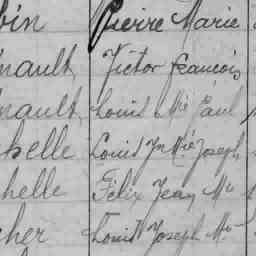 bin Pierre Marie
nault Victor François
nault Louis Mie Paul
helle Louis Jn Mie Joseph
helle Félix Jean Mie
cher Louis Joseph Mie